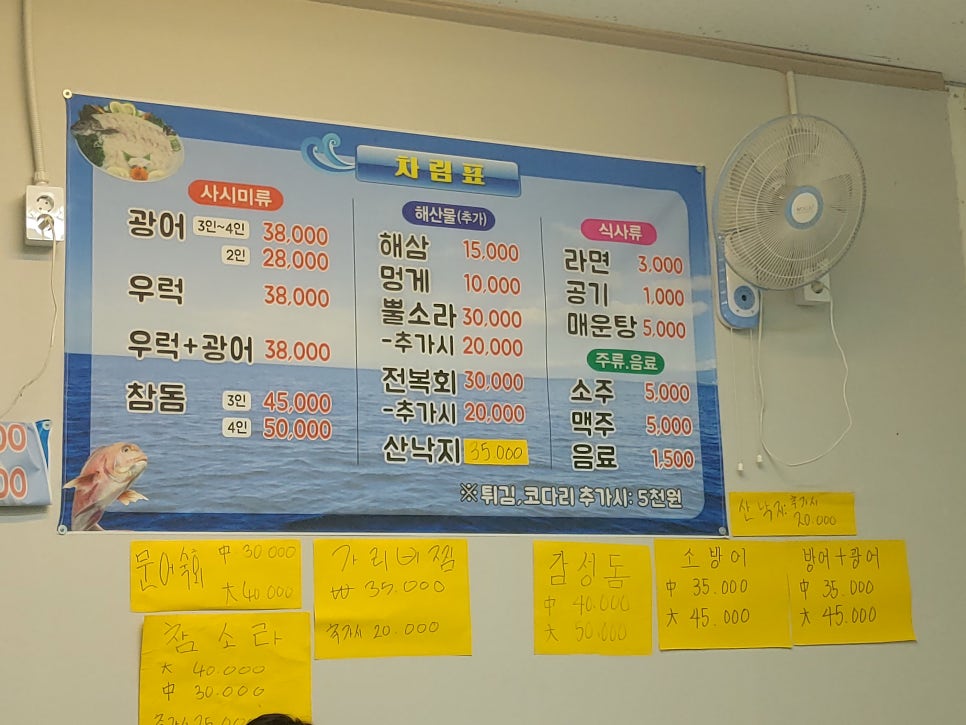 차림표
사시미류
광어 3인~4인 38,000
2인 28,000
우럭 38,000
우럭+광어 38,000
참돔 3인 45,000
4인 50,000
해산물(추가)
해삼 15,000
멍게 10,000
뿔소라 30,000
-추가시 20,000
전복회 30,000
-추가시 20,000
산낙지 35.000
식사류
라면 3,000
공기 1,000
매운탕 5,000
주류.음료
소주 5,000
맥주 5,000
음료 1,500
※ 튀김,코다리 추가시: 5천원
산낙지: 추가시
20.000
문어숙회 中 30.000
大 40.000
가리비찜
₩ 35.000
추가시 20.000
감성돔
中 40.000
大 50.000
소방어
中 35.000
大 45.000
방어+광어
中 35.000
大 45.000
참소라
大 40.000
中 30.000